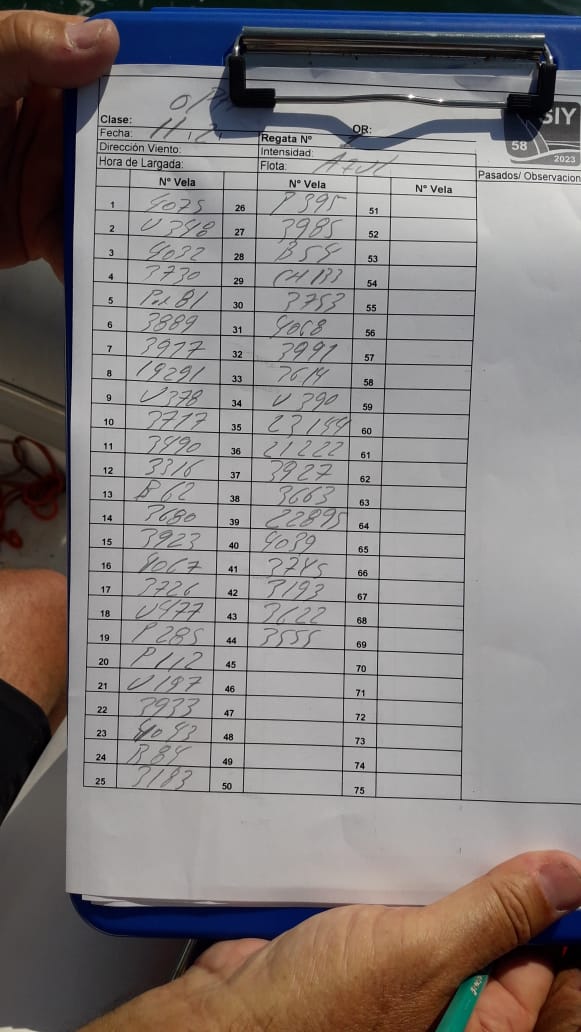 SIY
58
2023
Clase: OPTI
OR:
Fecha: 11.2.
Regata Nº
Dirección Viento:
Intensidad:
Hora de Largada:
Flota: AZUL
Pasados/ Observacion
Nº Vela Nº Vela Nº Vela
1 4075 26 P 395 51
2 U 348 27 3985 52
3 4032 28 B 54 53
4 3730 29 CH 133 54
5 81 30 3753 55
6 3889 31 4068 56
7 3977 32 3991 57
8 19291 33 3614 58
9 U 378 34 U 390 59
10 3717 35 23144 60
11 3490 36 21222 61
12 3316 37 3927 62
13 B 62 38 3663 63
14 3680 39 22895 64
15 3923 40 4039 65
16 4067 41 3745 66
17 3726 42 3193 67
18 U 477 43 3622 68
19 P 285 44 3555 69
20 P 112 45 70
21 U 197 46 71
22 3933 47 72
23 4043 48 73
24 B 84 49 74
25 3183 50 75